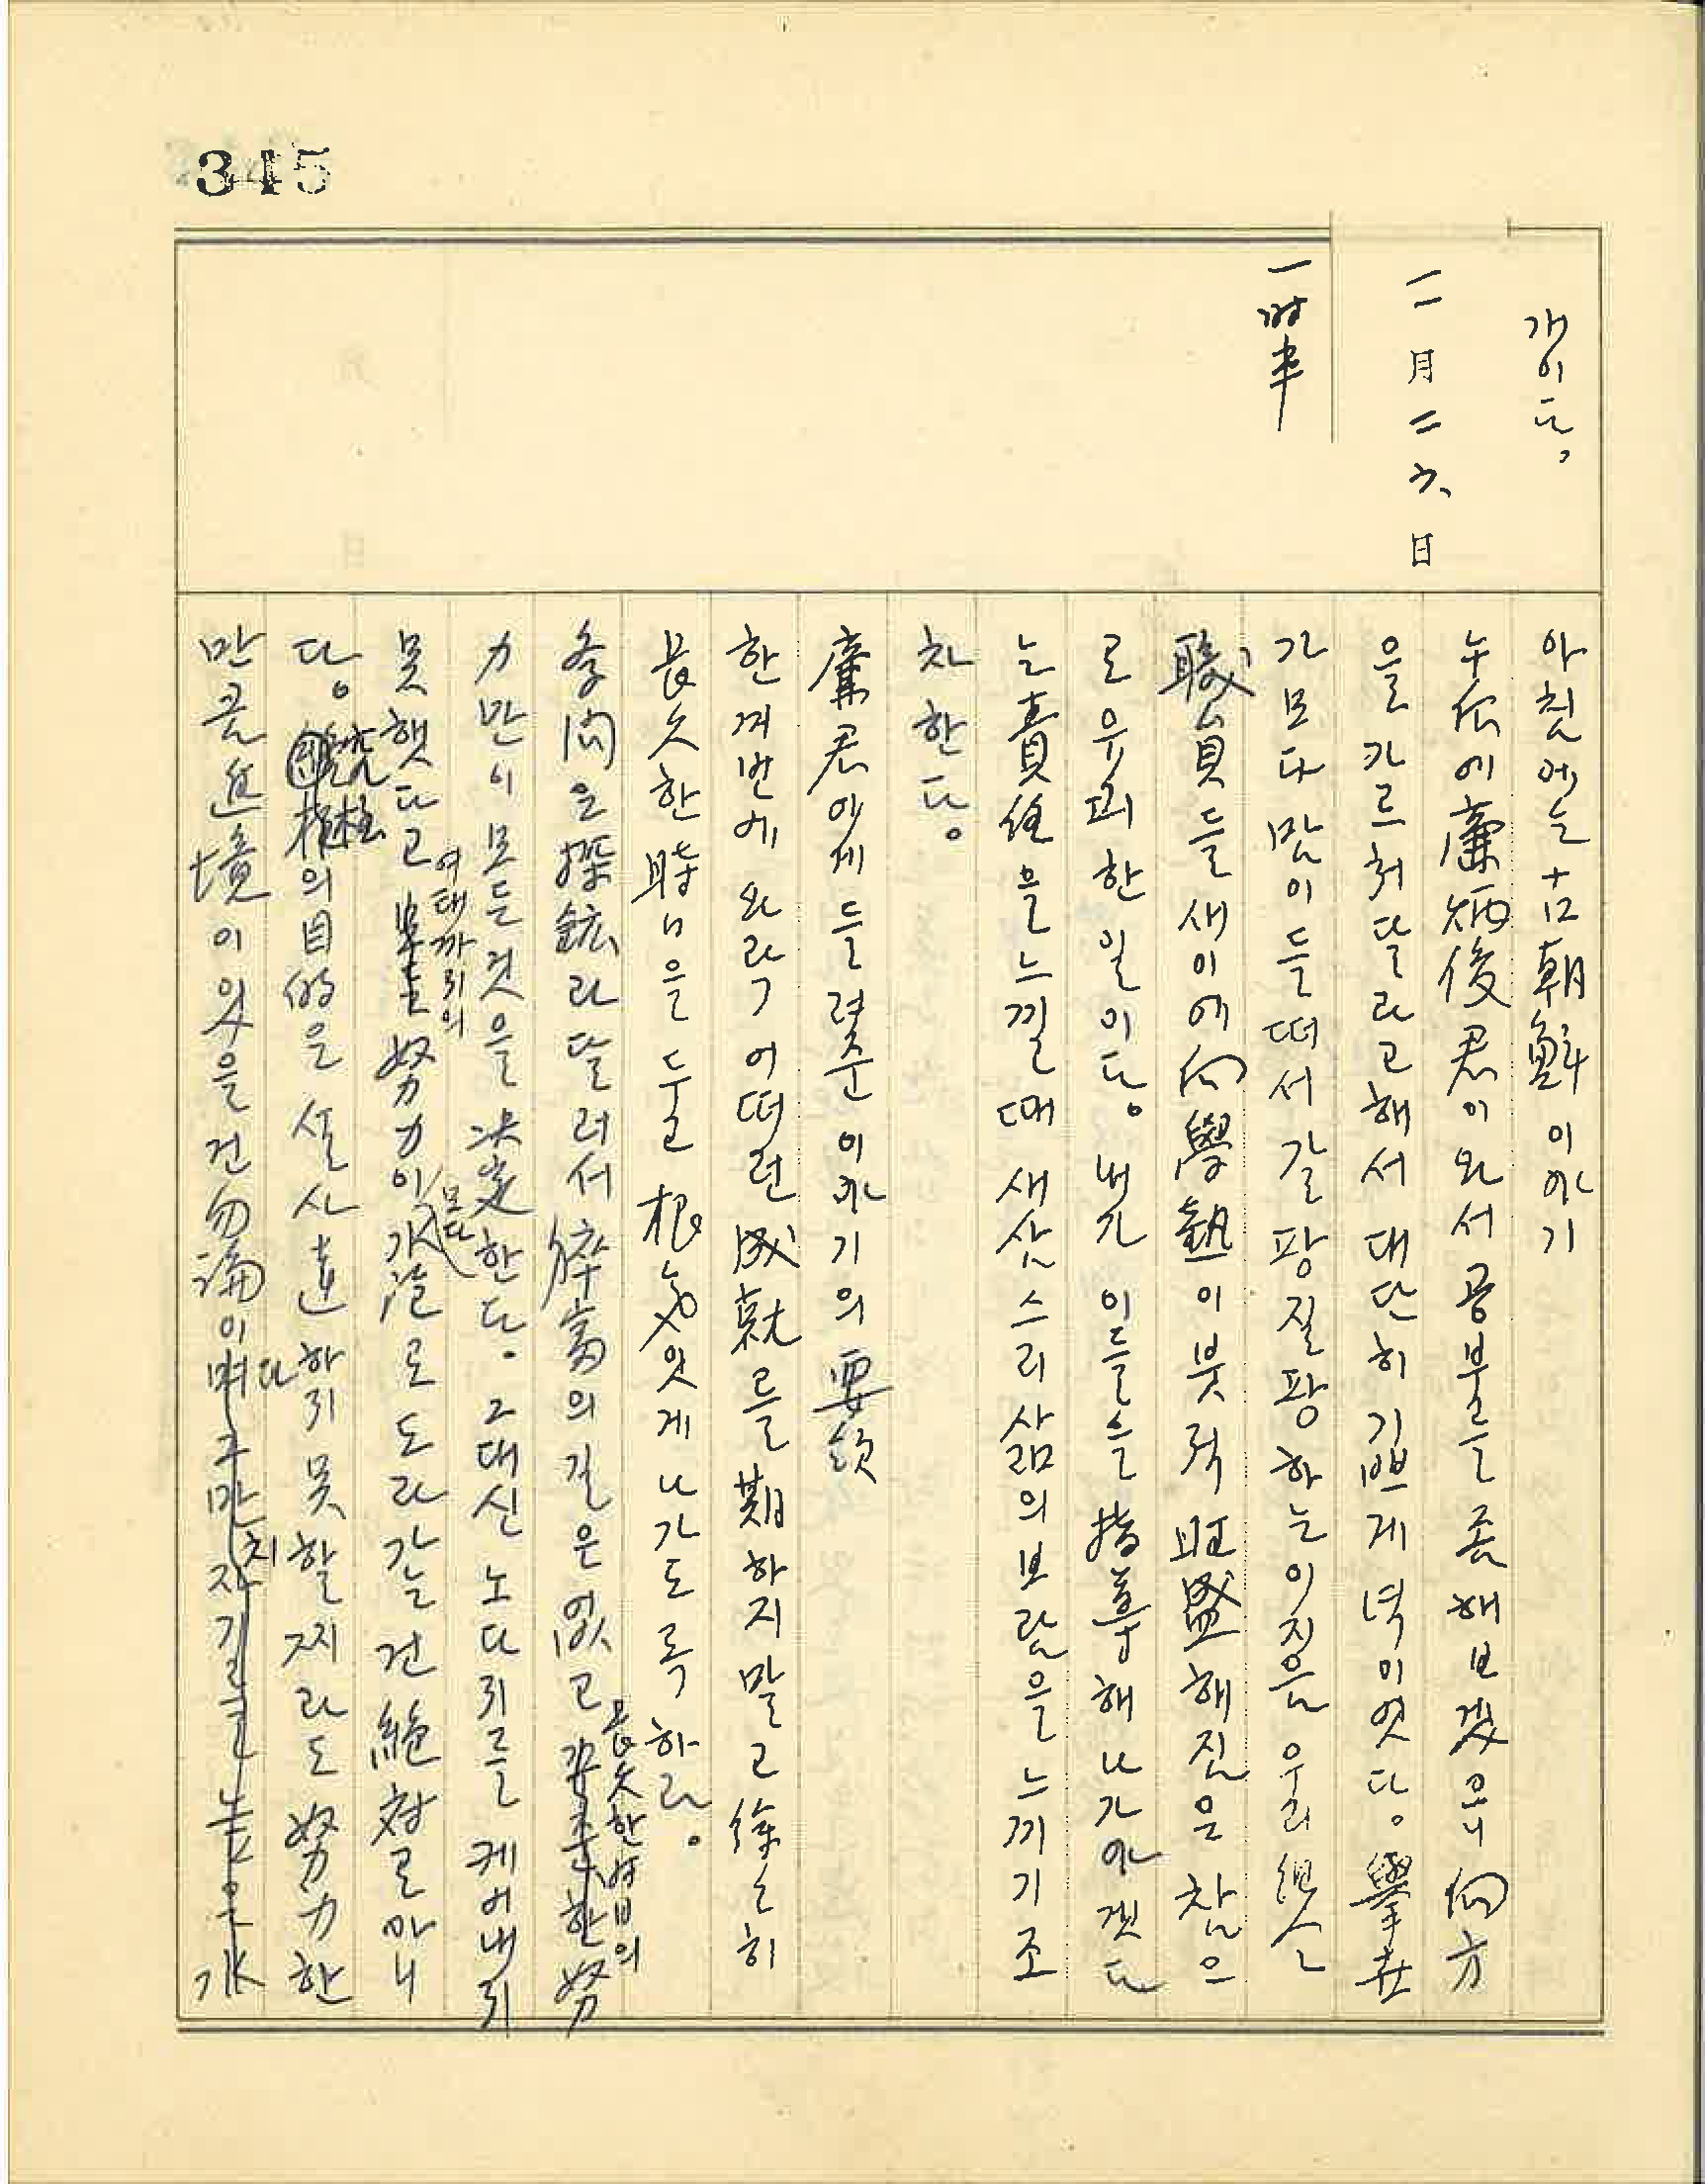 345
개이다,
二月二六日
一時半
아침에는 古朝鮮 이야기
午后에 廉炳俊君이 와서 공부를 좀 해보겠으니 向方
을 가르쳐 달라고 해서 대단히 기쁘게 녁이엿다. 擧世
가 모다 맘이 들떠서 갈팡질팡하는 이 지음 우리 組合
職員들 새이에 向學熱이 붓적 旺盛해진 은 참으
로 유쾌한 일이다. 내가 이들을 指導해 나가야겟다
는 責任을 느낄때 새삼스리 삶의 보람을 느끼기조
차 한다.
廉君에게 들려준 이야기의 要領
한꺼번에 와락 어떠런 成就를 期하지 말고 徐々히
長久한 時日을 두고 根氣잇게 나가도록 하라.
學問은 探鑛과 달러서 猝富의 길은 없고 長久한 時日의 努
力만이 모든것을 決定한다. 그대신 노다지를 케어내지
못햇다고 여태까지의 努力이 모다 水泡로 도라가는건 絶對로 아니
다. 究極의 目的은 설사 達하지 못할찌라도 努力한
만큼 進境이 있을건 勿論이다